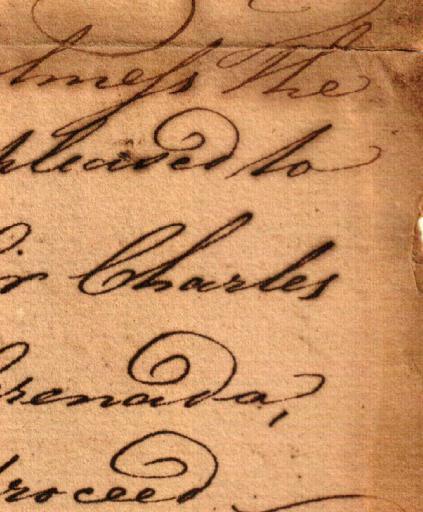 hneſs The
pleased to
ir Charles
renada,
roceed